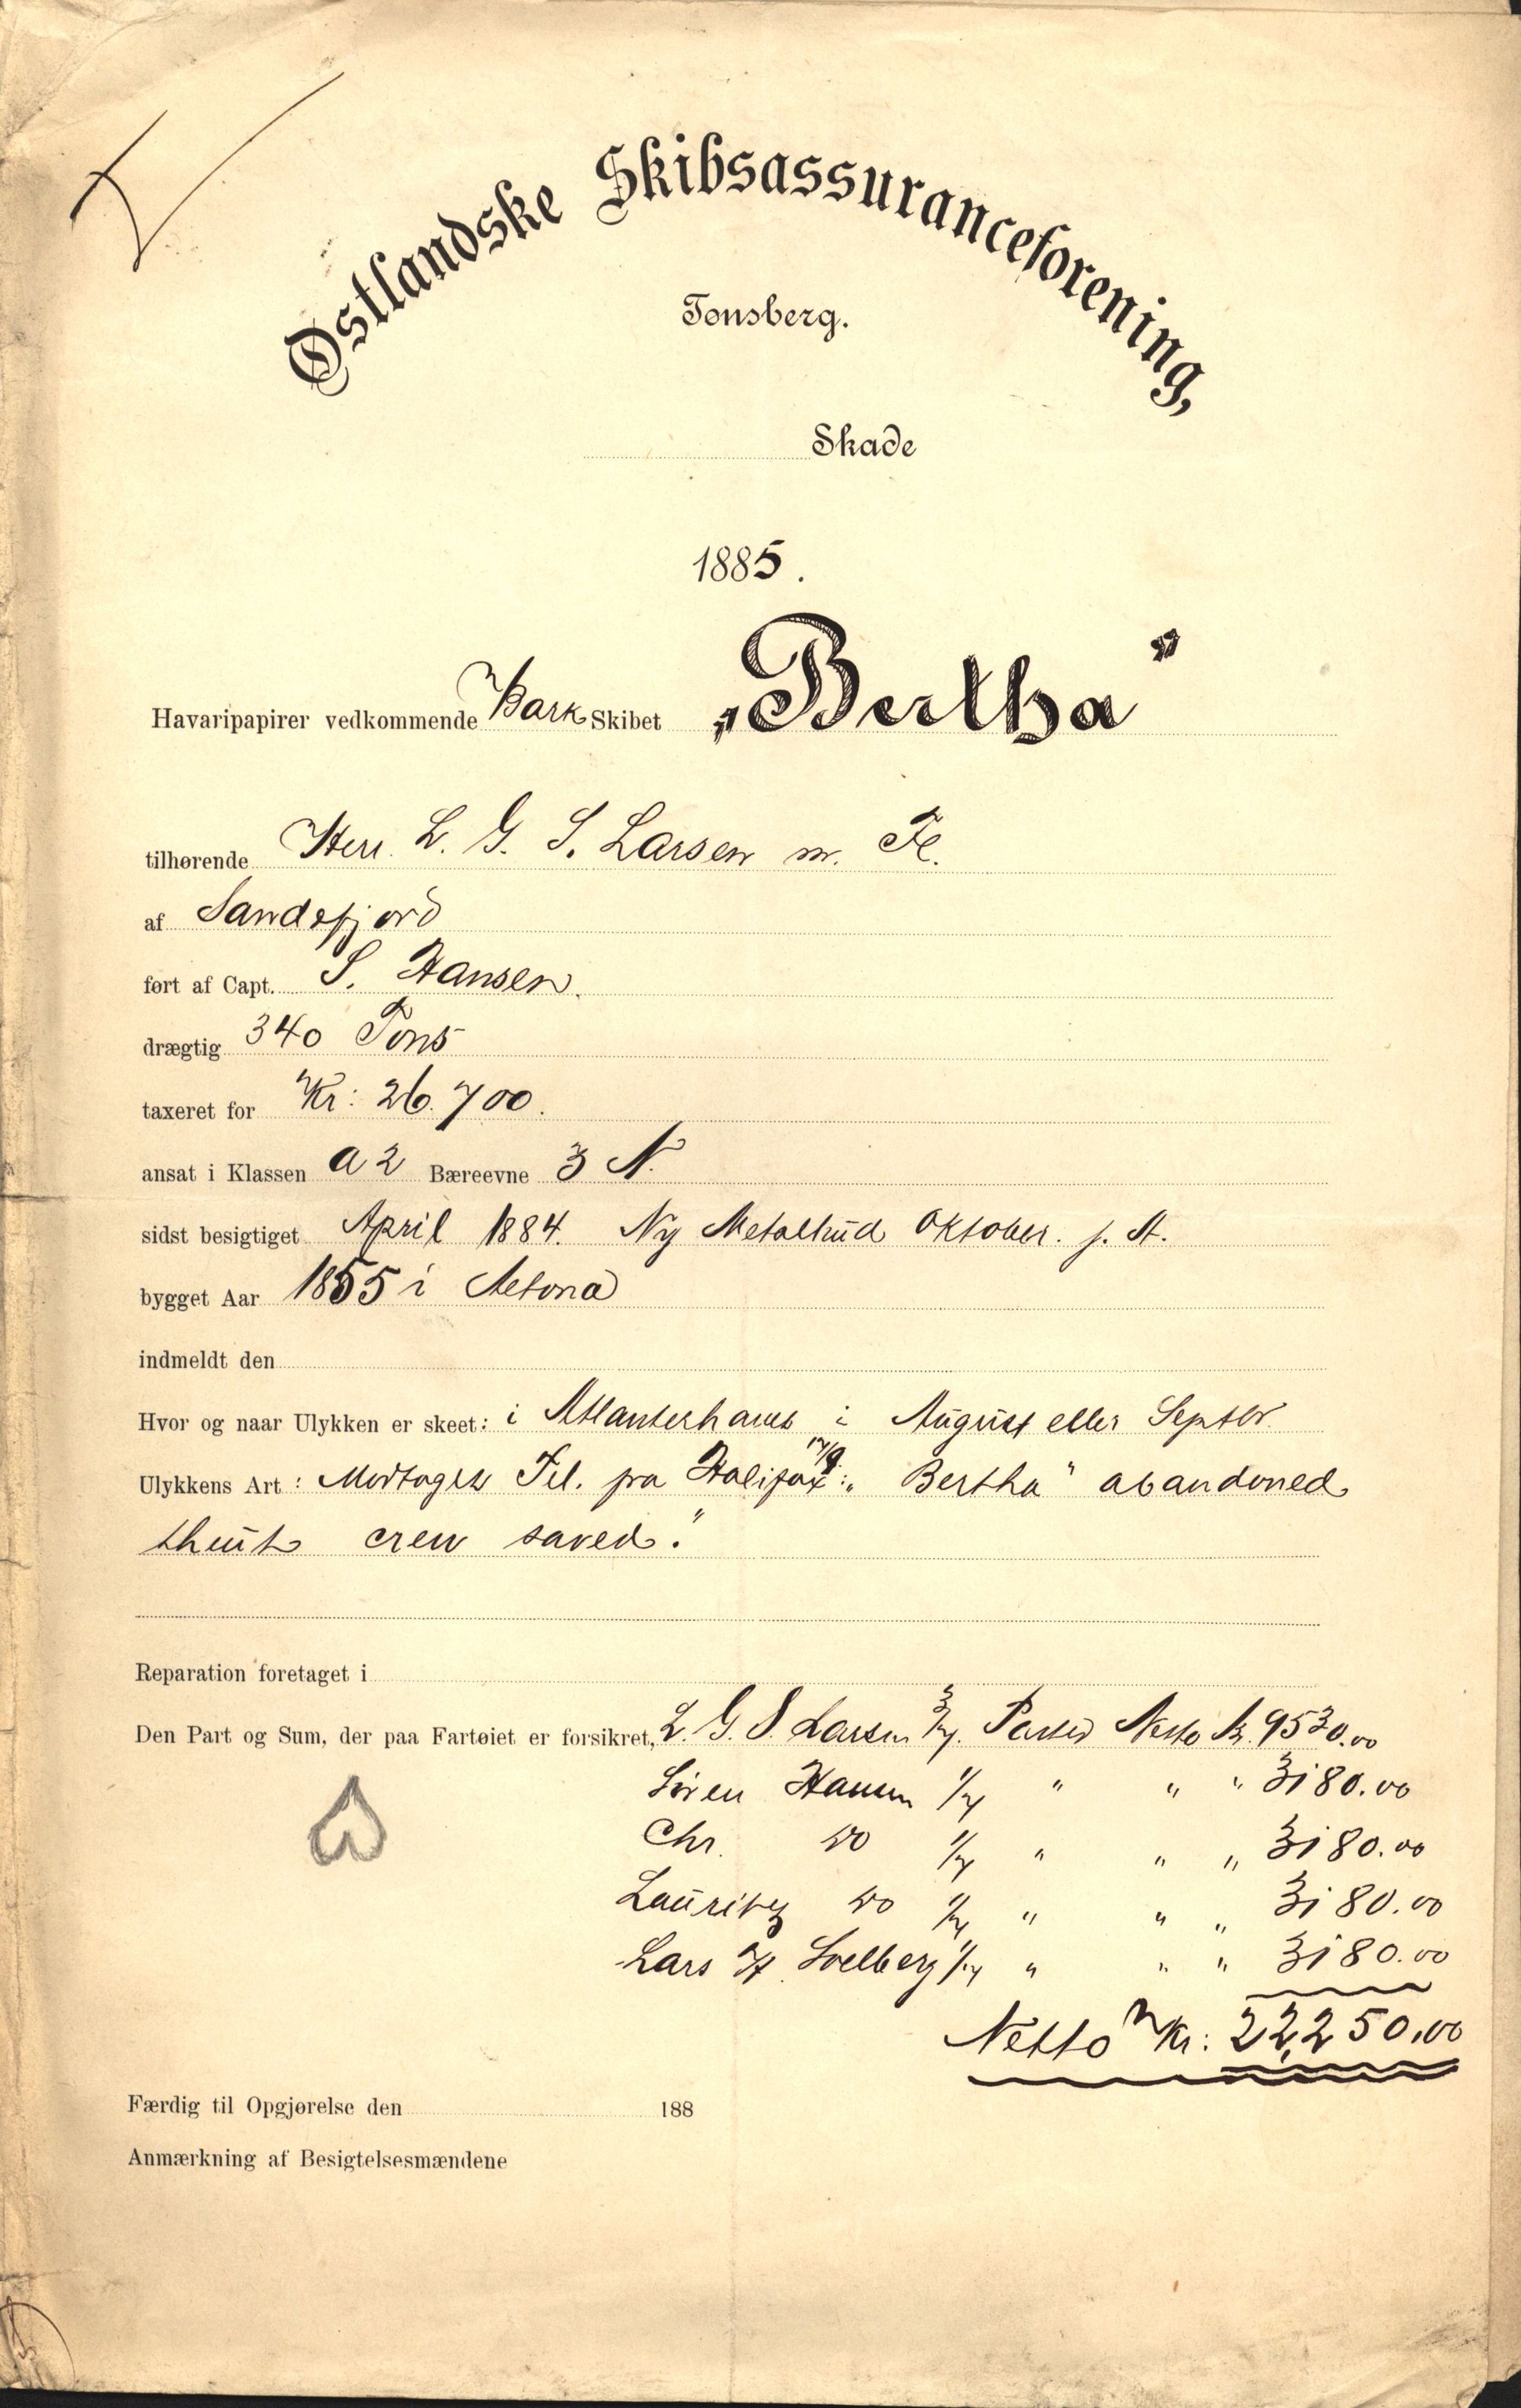 Østlandske Skibsassuranceforening,
Tønsberg.
Skade
1885.
Havaripapirer vedkommende Bark Skibet „Bertha"
tilhørende Herr L. G. S. Larsen m. Fl.
af Sandefjord
ført af Capt. S. Hansen.
drægtig 340 Tons
taxeret for Kr: 26.700.
ansat i Klassen A 2 Bæreevne 3 N.
sidst besigtiget April 1884. Ny Metalhud Oktober. s. A.
bygget Aar 1855 i Altona
indmeldt den
Hvor og naar Ulykken er skeet: i Atlanterhavet i August eller Septbr.
Ulykkens Art: Modtaget Tel. fra Halifax 17/9: „Bertha" abandoned
crew saved."
Reparation foretaget i
Den Part og Sum, der paa Fartøiet er forsikret, L. G. S. Larsen 3/7. Parter Netto Kr. 9530.00
Søren Hansen 1/7 " " " 3180.00
Chr. do 1/7 " " " 3180.00
Lauritz do 1/7 " " " 3180.00
Lars H. Solberg 1/7 " " " 3180.00
Netto Kr: 22,250.00
Færdig til Opgjørelse den 188
Anmærkning af Besigtelsesmændene